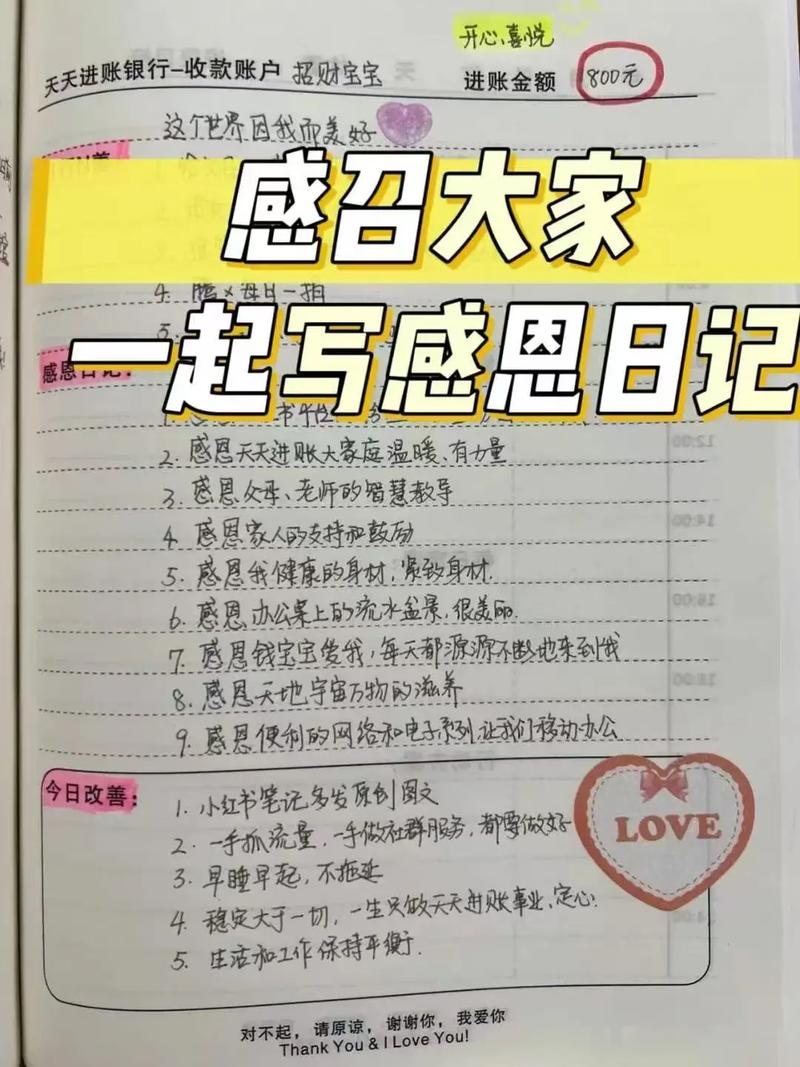 开心、喜悦
天天进账银行-收款账户 招财宝宝 进账金额 800元
这个世界因我而美好
感召大家
4. 每日一拍
5.
一起写感恩日记
感恩日记：
1.
2. 感恩天天进账大家庭温暖、有力量
3. 感恩父母、老师的智慧教导
4. 感恩家人的支持和鼓励
5. 感恩我健康的身材，紧致身材.
6. 感恩办公桌上的流水盆景，很美丽.
7. 感恩钱宝宝爱我，每天都源源不断地来到我
8. 感恩天地宇宙万物的滋养
9. 感恩便利的网络和电子系列让我们移动办公
今日改善：
1. 小红书笔记多发原创图文
2. 一手抓流量，一手做社群服务，都要做好
3. 早睡早起，不拖延
4. 稳定大于一切，一生只做天天进账事业、定心!
5. 生活和工作保持平衡.
LOVE
对不起，请原谅，谢谢你，我爱你
Thank You & I Love You!